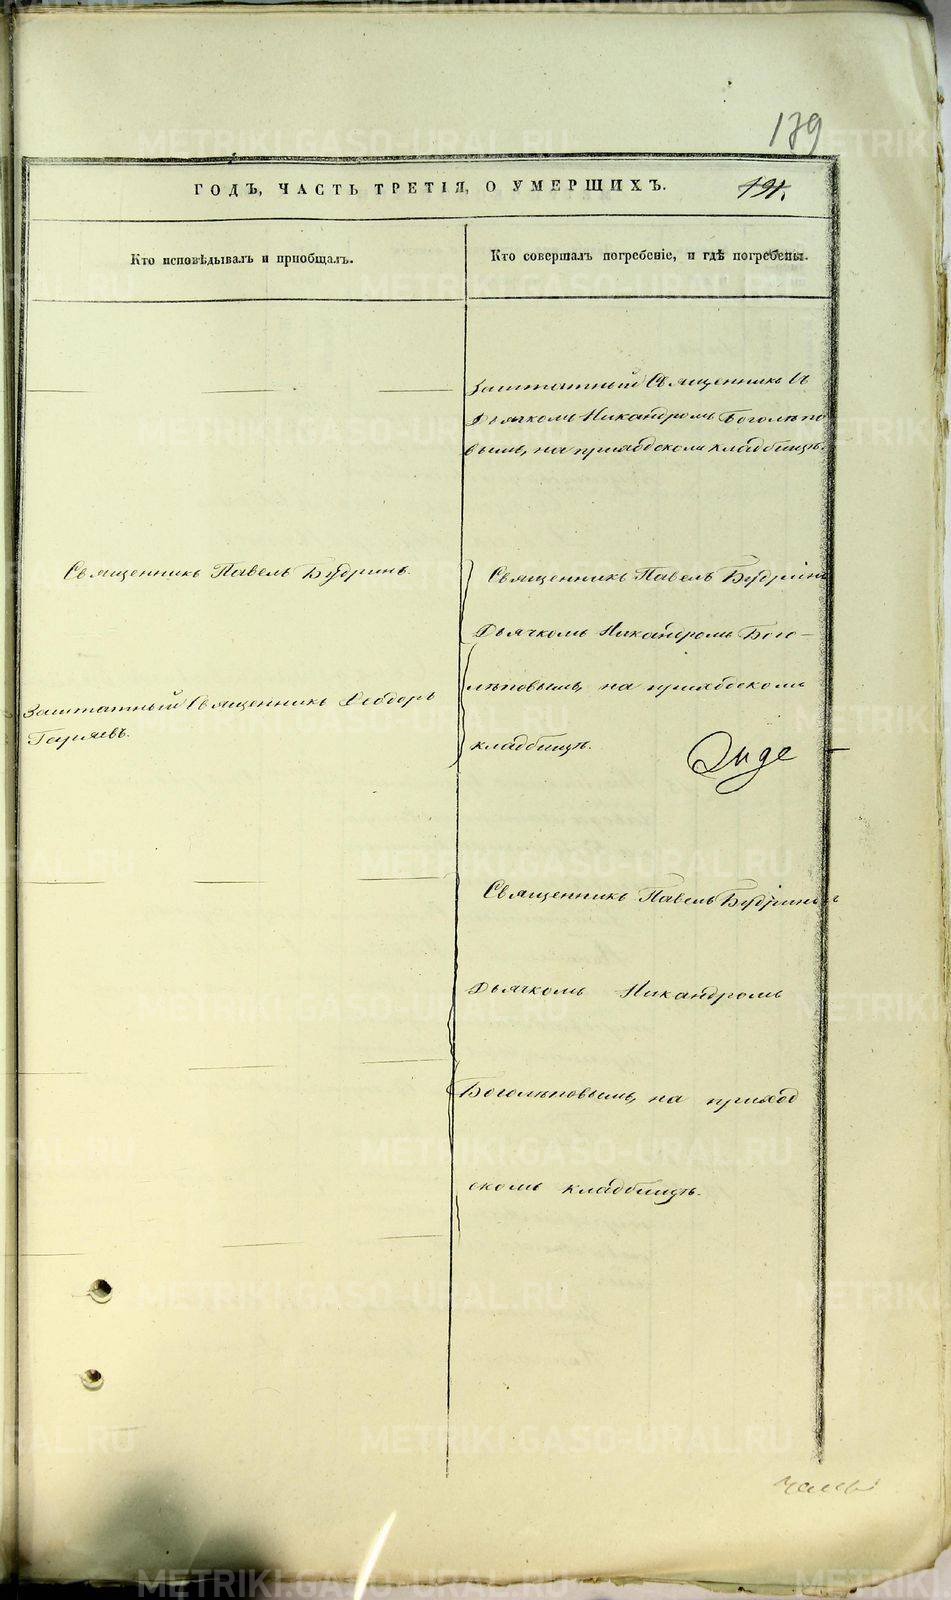 179
ГОДЪ, ЧАСТЬ ТРЕТІЯ, О УМЕРШИХЪ.
191.
Кто исповѣдывалъ и пріобщалъ.
Кто совершалъ погребеніе, и гдѣ погребены.
Заштатный Священникъ съ
Дьячкомъ Никандромъ Боголѣпо
вымъ, на приходскомъ кладбищѣ.
Священникъ Павелъ Будринъ.
Священникъ Павелъ Будринъ
Дьячкомъ Никандромъ Бого-
лѣповымъ, на приходскомъ
кладбищѣ.
Заштатный Священникъ Ѳеодоръ
Гаряевъ.
Священникъ Павелъ Будринъ съ
Дьячкомъ Никандромъ
Боголѣповымъ, на приход
скомъ кладбищѣ.
METRIKI.GASO-URAL.RU